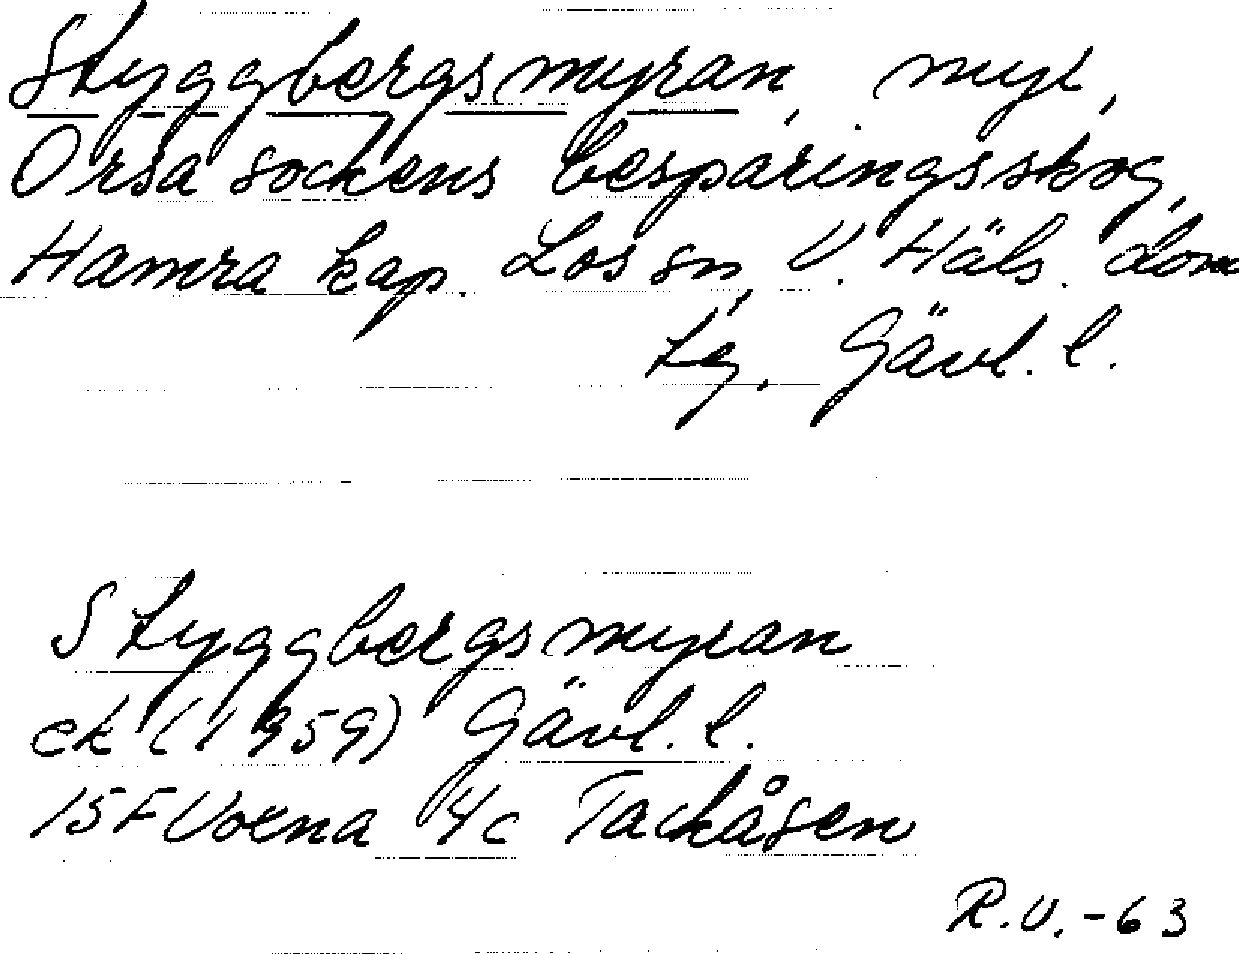 Styggbergsmyran, myr,
Orsa sockens besparingsskog,
Hamra kap. Los sn, V. Häls. dom
tg. Gävl. l.
Styggbergsmyran
ek (1959) Gävl. l.
15F Voxna 4c Tackåsen
R.V.-63